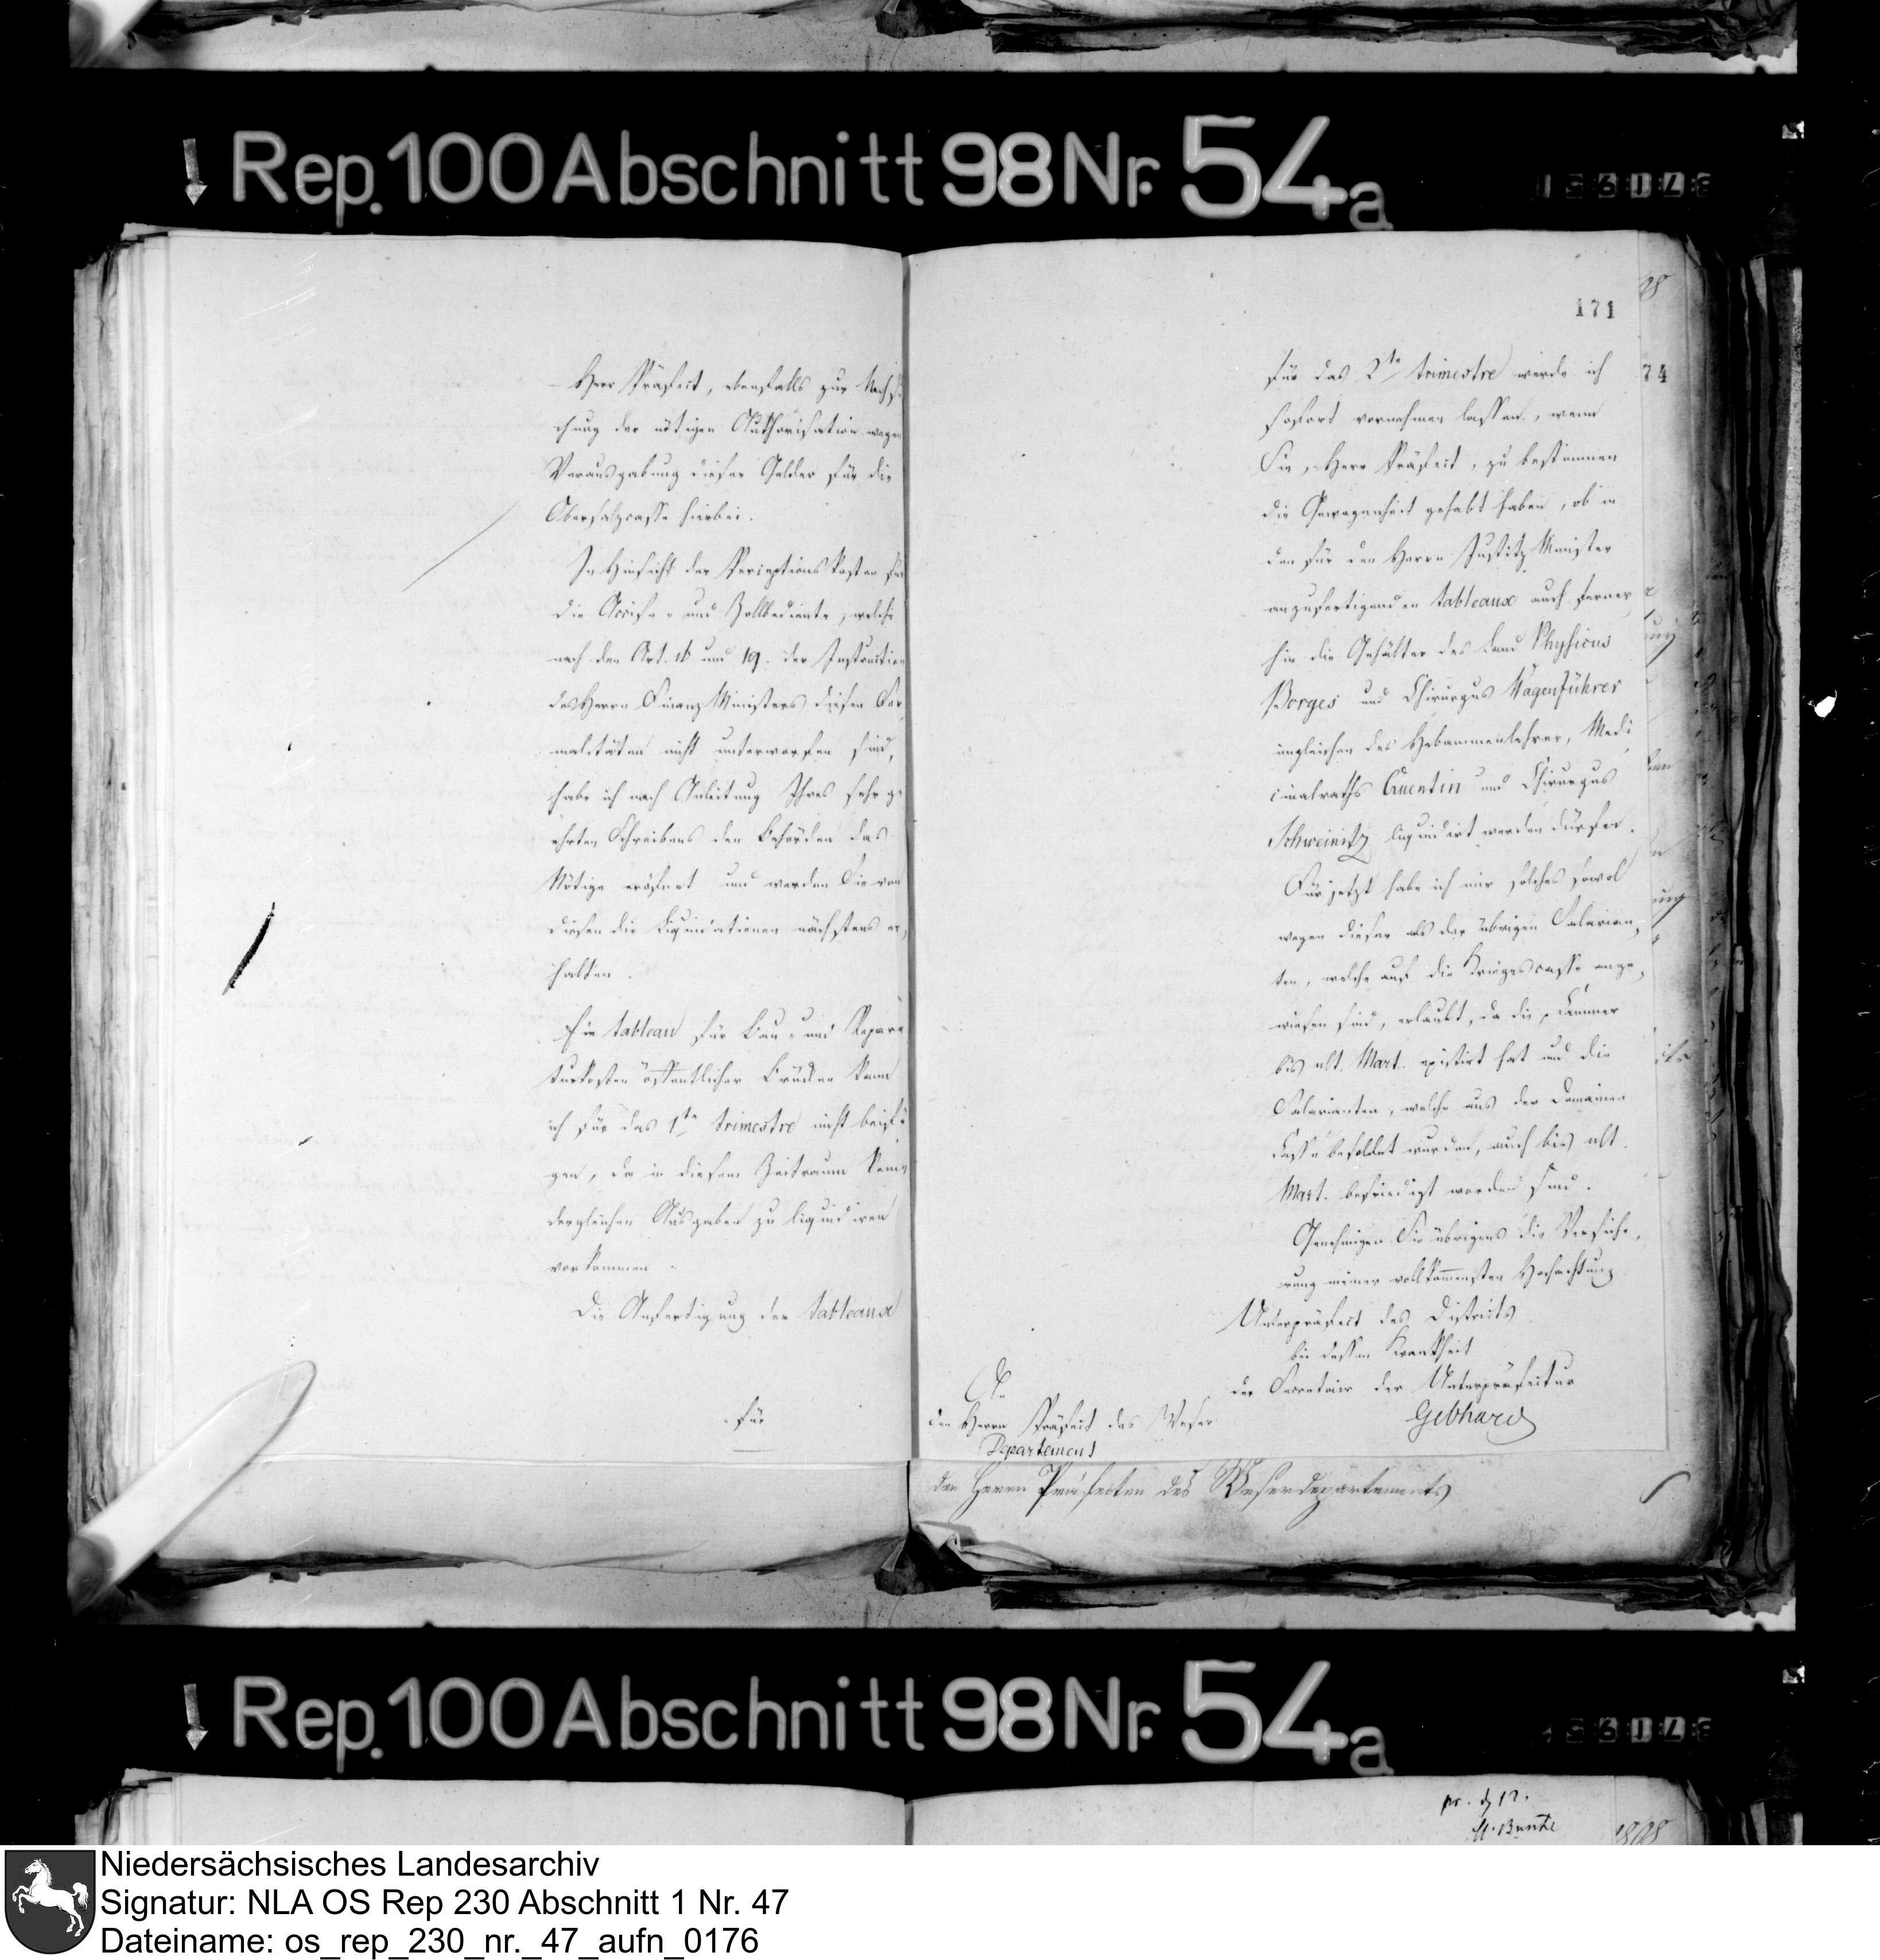 Rep. 100 Abschnitt 98 Nr. 54a
171
Herr Präfect, ebenfalls zur Nachsu
chung der nötigen Authorisation wegen
Verausgabung dieser Gelder für die
Obersalzcasse hierbei.
In Hinsicht der Perceptions Kosten für
die Accise- und Zollbediente, welche
nach den Art. 16 und 19. der Instruction
des Herrn Finanz Ministers diesen For
malitäten nicht unterworfen sind,
habe ich nach Anleitung Ihres sehr ge
ehrten Schreibens den Behörden das
Nötige eröfnet und werden Sie von
diesen die Liquidationen nächstens er,
halten.
Ein tableau für Bau- und Repara
turkosten öffentlicher Brücken kann
ich für das 1te trimestre nicht beifü
gen, da in diesem Zeitraum keine
dergleichen Ausgaben zu liquidiren
vorkommen.
Die Anfertigung der tableaux
für
für das 2te trimestre werde ich
sofort vornehmen lassen, wenn
Sie, Herr Präfect, zu bestimmen
die Gewogenheit gehabt haben, ob in
den für den Herrn Justitz Minister
anzufertigenden tableaux auch ferner
hin die Gehälter des Land Physicus
Borges und Chirurgus Wagenführer
imgleichen des Hebammenlehrer, Medi
cinalraths Quentin und Chirurgus
Schweinitz liquidirt werden dürfen.
Für jetzt habe ich mir solches sowol
wegen dieser als der übrigen Salarian,
ten, welche auf die Kriegescasse ange,
wiesen sind, erlaubt, da die Cammer
bis ult. Mart. existirt hat und die
Salarianten, welche aus der Domainen
Casse besoldet wurden, auch bis ult.
Mart. befriedigt worden sind.
Genehmigen Sie übrigens die Versiche,
rung meiner vollkommensten Hochachtung
Unterpräfect des Districts
bei dessen Krankheit
der Secretair der Unterpräfectur
Gebhard
An
den Herrn Präfect des Weser
Departements
den Herrn Präfecten des Weserdepartements
74
Rep. 100 Abschnitt 98 Nr. 54a
1808
Niedersächsisches Landesarchiv
Signatur: NLA OS Rep 230 Abschnitt 1 Nr. 47
Dateiname: os_rep_230_nr._47_aufn_0176